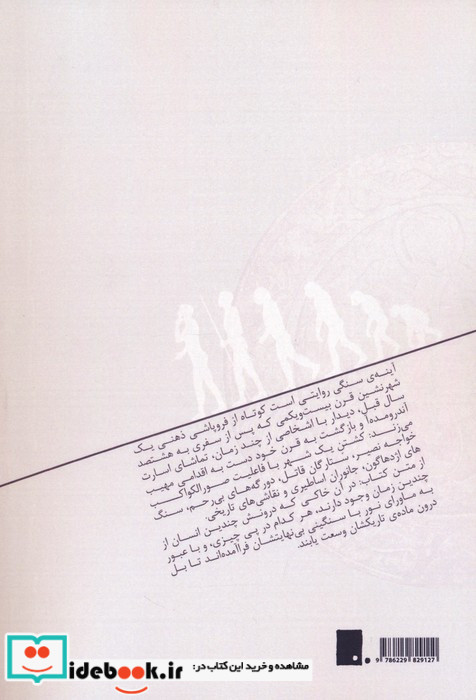 آینه‌ی سنگی روایتی است کوتاه از فروپاشی ذهنی یک
شهرنشین قرن بیست‌ویکمی که پس از سفری به هشتصد
سال قبل، دیدار با اشخاصی از چند زمان، تماشای اسارت
اندرومدهآ و بازگشت به قرن خود دست به اقدامی مهیب
می‌زند: کشتن یک شهر با فاعلیت صورالکواکب
خواجه نصیر، ستارگان قاتل، دورگه‌های بی‌رحم، سنگ
های اژدهاگون، جانوران اساطیری و نقاشی‌های تاریخی.
از متن کتاب: در آن خاکی که درونش چندین انسان از
چندین زمان وجود دارند، هر کدام در پی چیزی، و با عبور
به ماورای نور با سنگینی بی‌نهایتشان فراآمده‌اند تا بل
درون ماده‌ی تاریکشان وسعت یابند.
9 786229 829127
idebook.ir
مشاهده و خرید این کتاب در: